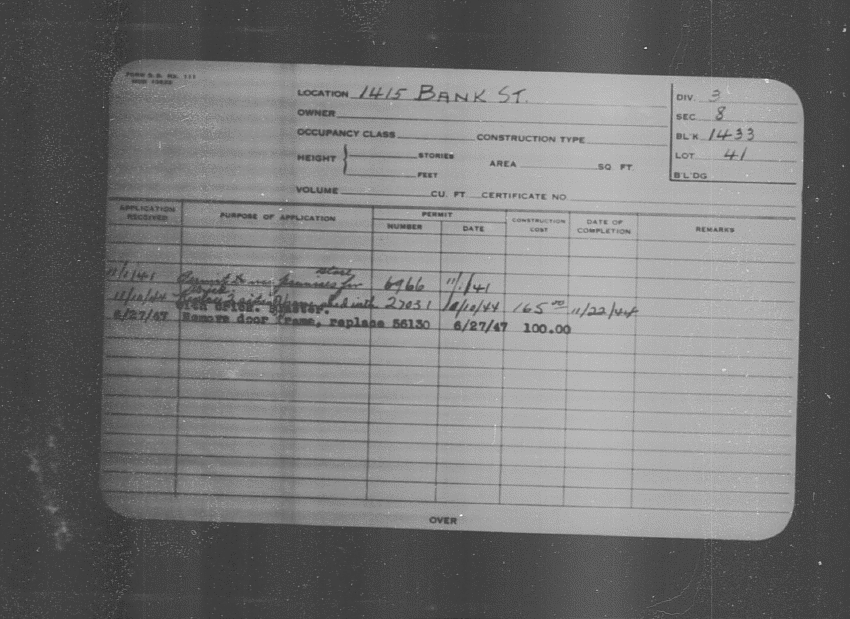 FORM B.B. No. 111
LOCATION 1415 BANK ST.
OWNER
OCCUPANCY CLASS CONSTRUCTION TYPE
HEIGHT STORIES FEET AREA SQ. FT.
VOLUME CU. FT. CERTIFICATE NO.
DIV. 3
SEC. 8
BL'K 1433
LOT 41
B'L'DG
APPLICATION RECEIVED PURPOSE OF APPLICATION PERMIT NUMBER DATE CONSTRUCTION COST DATE OF COMPLETION REMARKS
store
11/1/41 Permit to use premises for 6966 11/1/41
11/10/44 27031 10/10/44 165 00 11/22/44
with brick. plaster.
6/27/47 Remove door frame, replace 56130 6/27/47 100.00
OVER